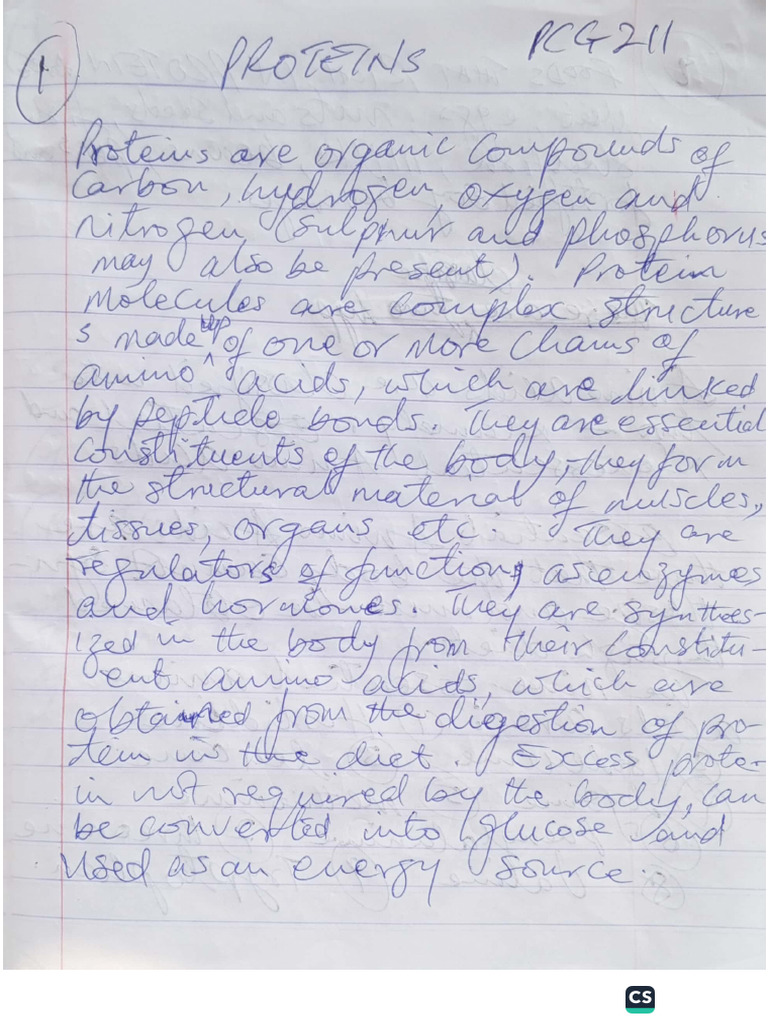 PCG211
1 PROTEINS
Proteins are organic compounds of
Carbon, hydrogen, oxygen and
nitrogen (sulphur and phosphorus
may also be present). Protein
molecules are complex structure
s made up of one or more chains of
amino acids, which are linked
by peptide bonds. They are essential
constituents of the body, they form
the structural material of muscles,
tissues, organs etc. They are
regulators of function, as enzymes
and hormones. They are synthes-
ized in the body from their constitu-
ent amino acids, which are
obtained from the digestion of pro-
tein in the diet. Excess prote-
in not required by the body, can
be converted into glucose and
used as an energy source.
CS